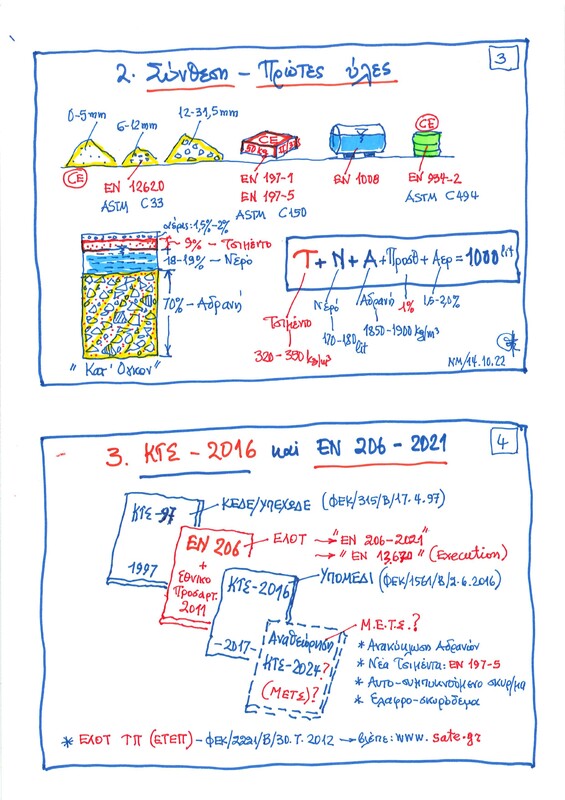 3
2. Σύνθεση – Πρώτες ύλες
0-5mm
6-12mm
12-31,5mm
CE
CE
CE
EN 12620
ASTM C33
EN 197-1
EN 197-5
ASTM C150
EN 1008
EN 934-2
ASTM C494
αέρας: 1,5%-2%
9% – Τσιμέντο
18-19% – Νερό
70% – Αδρανή
"Κατ' Όγκον"
T + N + A + Πρόσθ + Αερ = 1000 lit
Τσιμέντο
320 - 350 kg/m³
Νερό
170-180 lit
Αδρανή
1850-1900 kg/m³
1%
1,5-2,0%
NM/14.10.22
4
3. ΚΤΣ - 2016 και EN 206 - 2021
ΚΤΣ-97
1997
ΚΕΔΕ/ΥΠΕΧΩΔΕ (ΦΕΚ/315/Β/17.4.97)
EN 206
+
Εθνικό
Προσαρτ.
2011
ΕΛΟΤ → "EN 206-2021"
→ "EN 13670" (Execution)
ΚΤΣ-2016
-2017-
ΥΠΟΜΕΔΙ (ΦΕΚ/1561/Β/2.6.2016)
Αναθεώρηση
ΚΤΣ-2024?
(ΜΕΤΣ)?
Μ.Ε.Τ.Σ.?
* Ανακύκλωση Αδρανών
* Νέα Τσιμέντα: EN 197-5
* Αυτο-συμπυκνούμενο σκυρ/μα
* Ελαφρο-σκυρόδεμα
* ΕΛΟΤ ΤΠ (ΕΤΕΠ) – ΦΕΚ/2221/Β/30.7.2012 → βλέπε: www.sate.gr